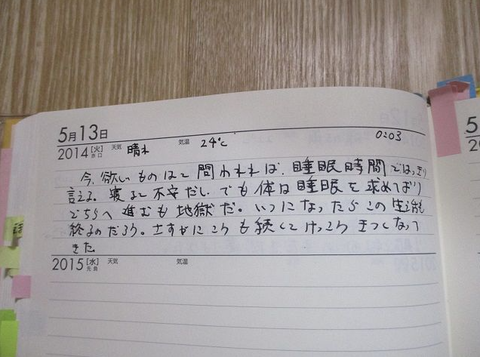 5月13日
2014 [火] 先口 天気 晴れ 気温 24℃ 0:03
今、欲しいものはと問われれば、睡眠時間ではっきり
言える。寝ると不安だし、でも体は睡眠を求めっぱり
どちらへ進むも地獄だ。いつになったらこの生活も
終るのだろう。さすがにこうも続くとけっこうきつくなって
きた。
2015 [水] 先負 天気 気温